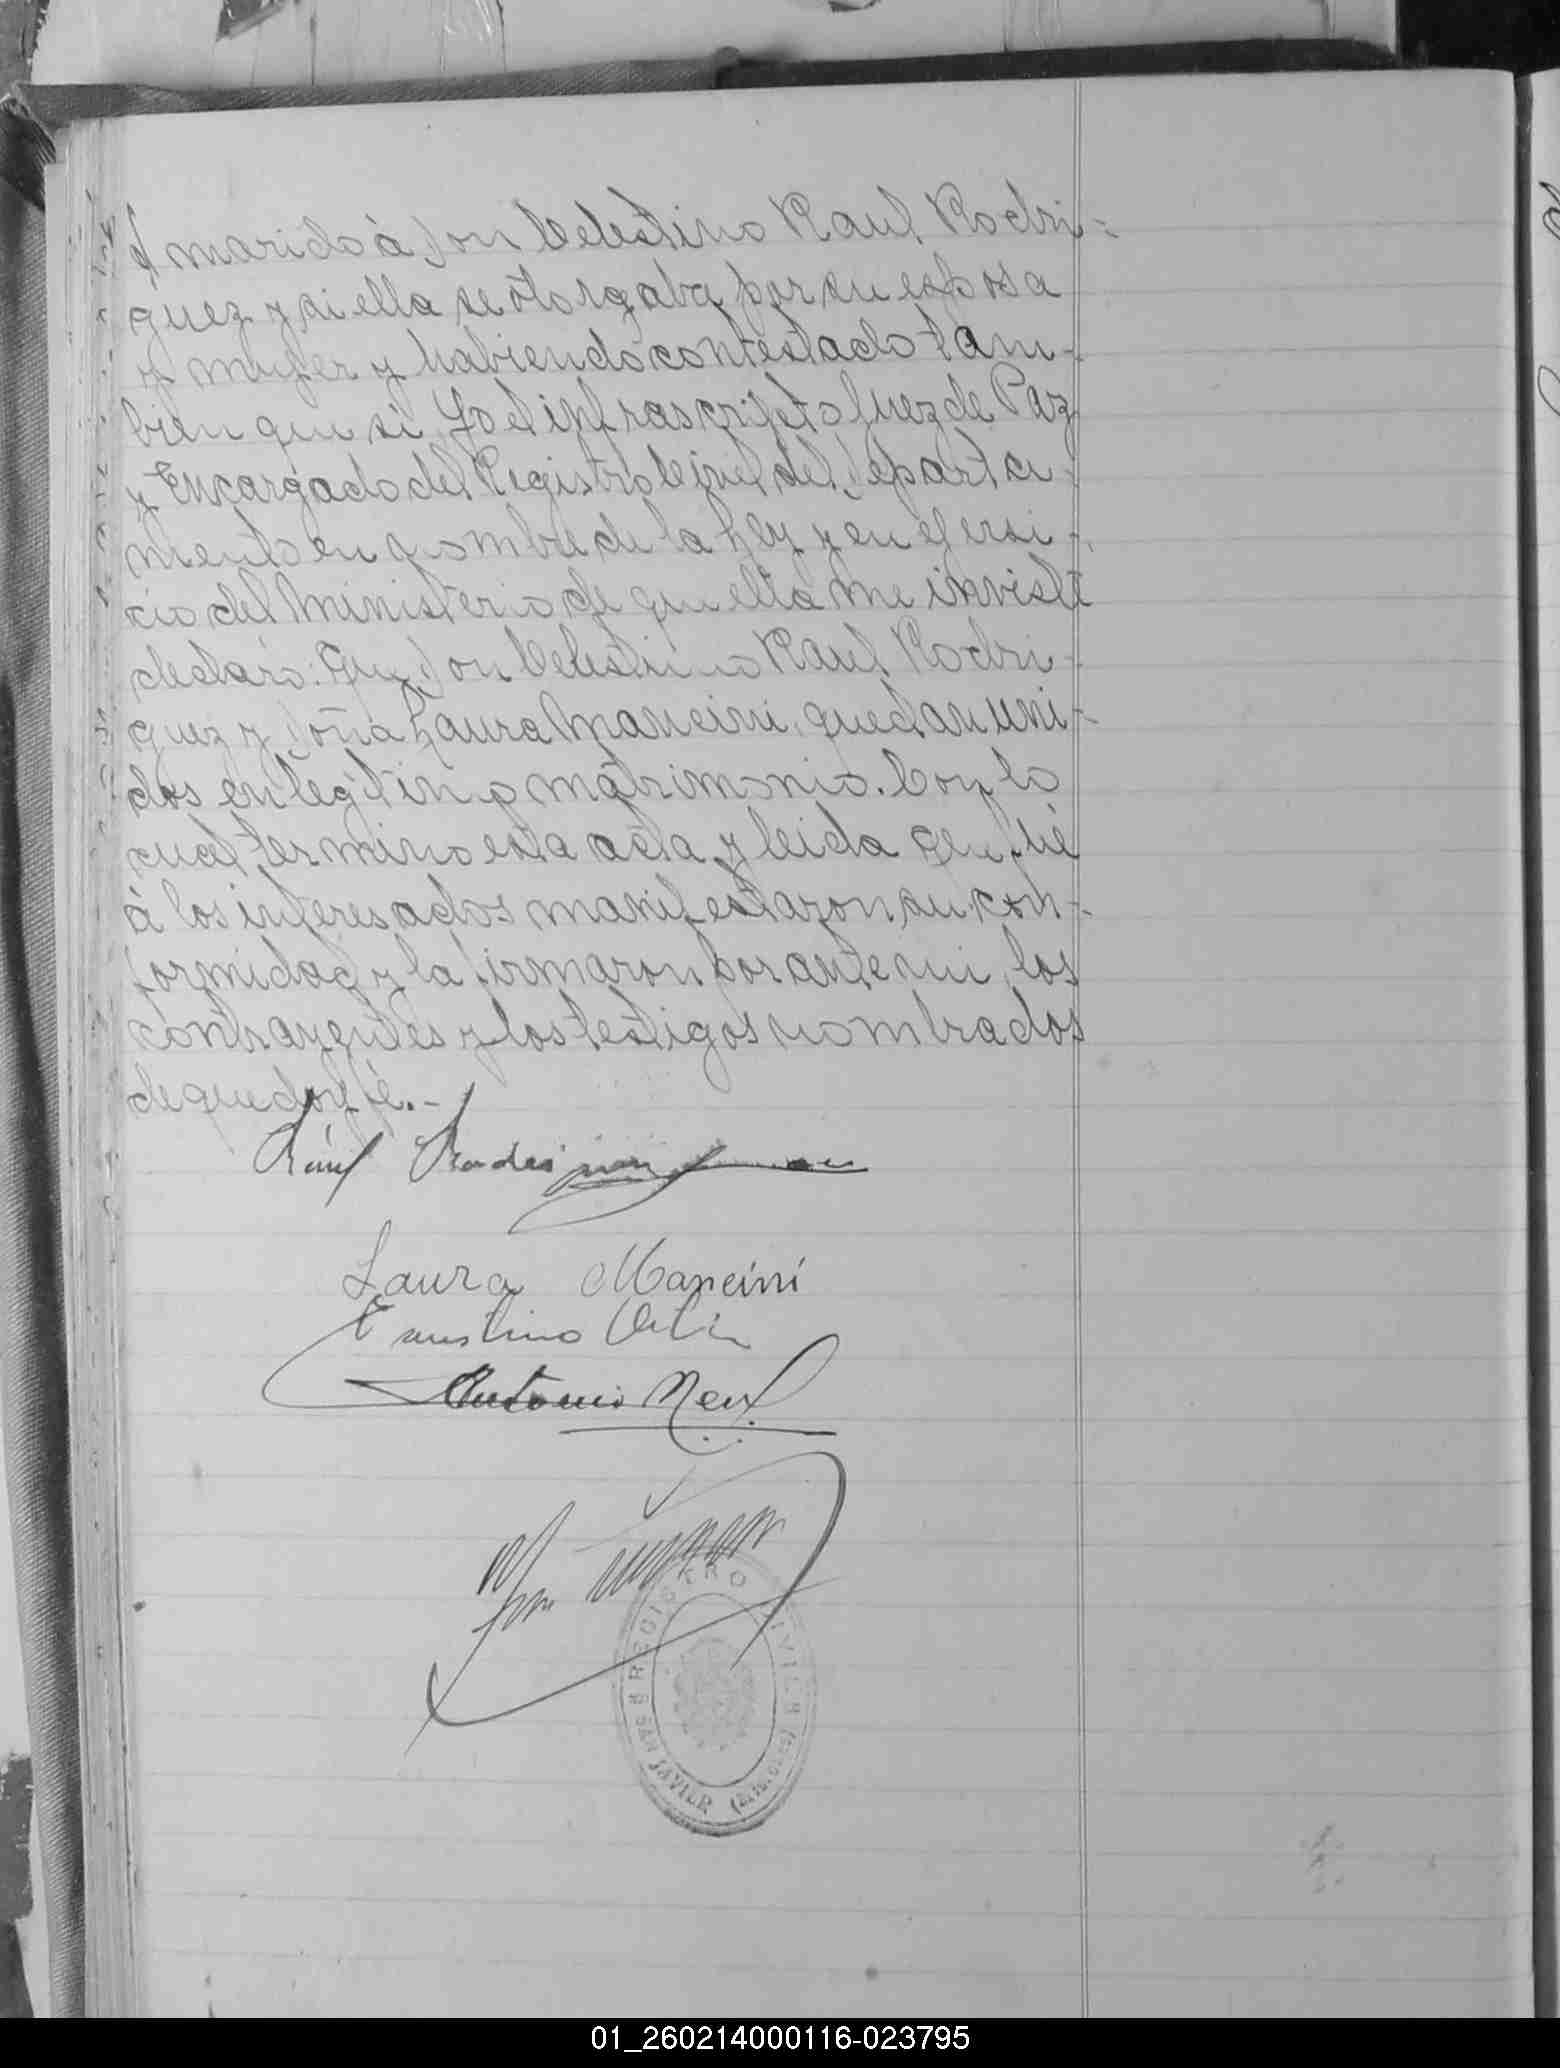 y marido á Don Celestino Raul Rodri=
guez y si ella se otorgaba por su esposa
y mujer y habiendo contestado tam-
bien que si, Yo el infrascripto Juez de Paz
y Encargado del Registro Civil del Departa-
mento en nombre de la Ley y en ejersi-
cio del Ministerio de que ella me inviste
declaro: Que Don Celestino Raul Rodri-
guez y Doña Laura Mancini, quedan uni-
dos en legitimo matrimonio. Con lo
cual termino esta acta y leida que fué
á los interesados manifestaron su con-
formidad y la firmaron por ante mi, los
contrayentes y los testigos nombrados
de que doy fé.-
Rául Rodriguez
Laura Mancini
Faustino
Antonio
REGISTRO CIVIL
SAN JAVIER
01_260214000116-023795